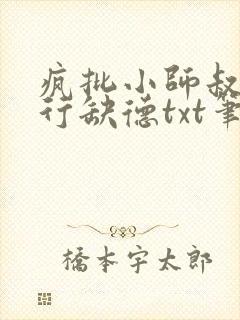 疯批小师叔
行缺德txt笔
橋本宇太郎